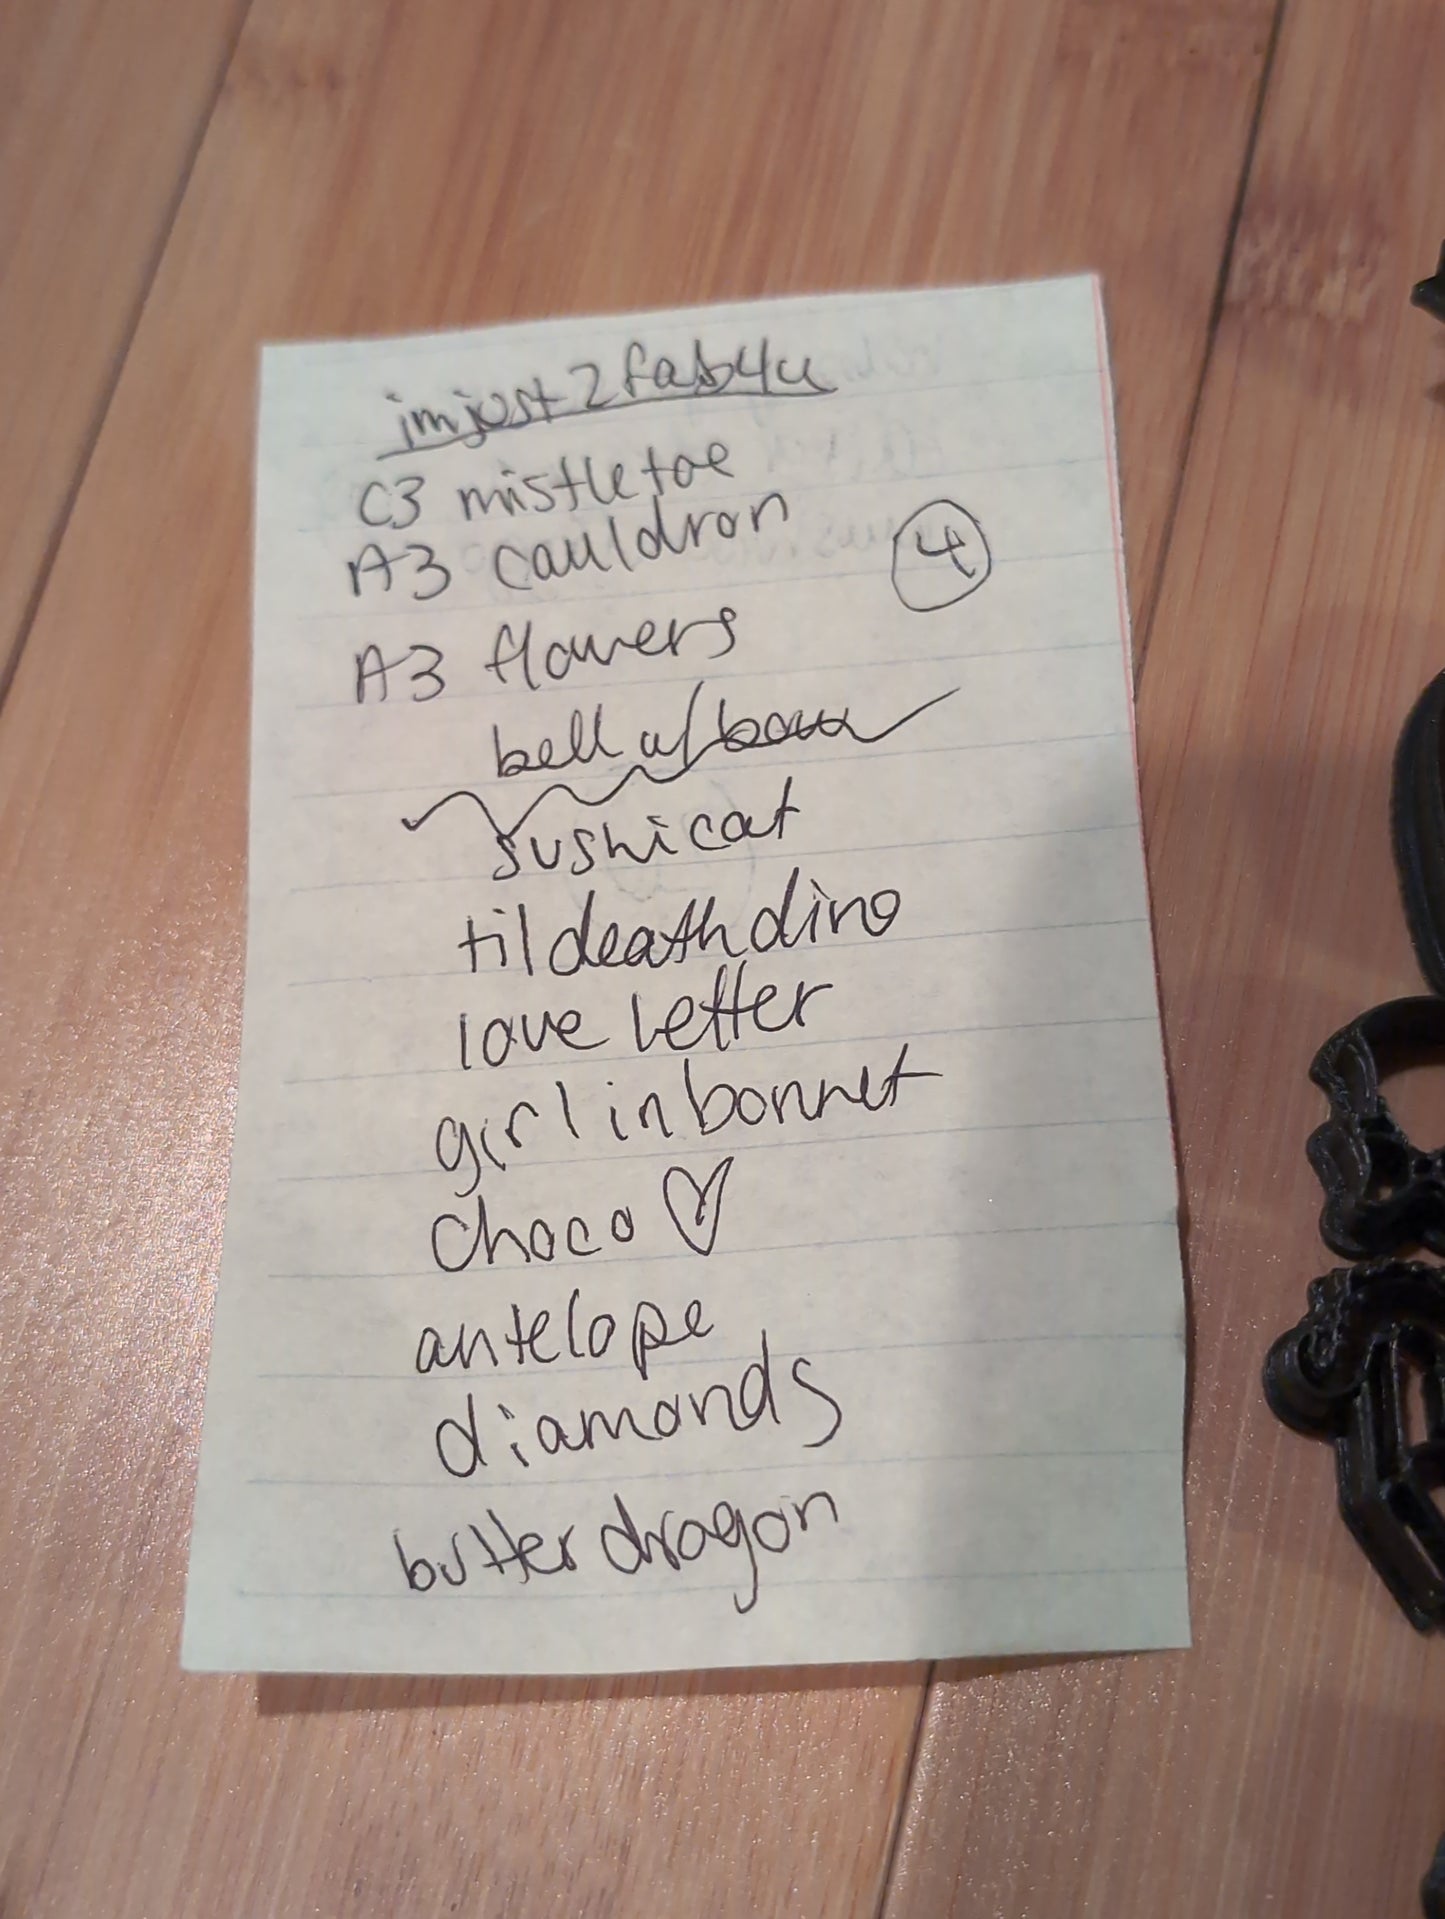 imjust2fab4u
C3 mistletoe
A3 cauldron
4
A3 flowers
bell w/ bow
sushi cat
til death dino
love letter
girl in bonnet
choco ♡
antelope
diamonds
butter dragon